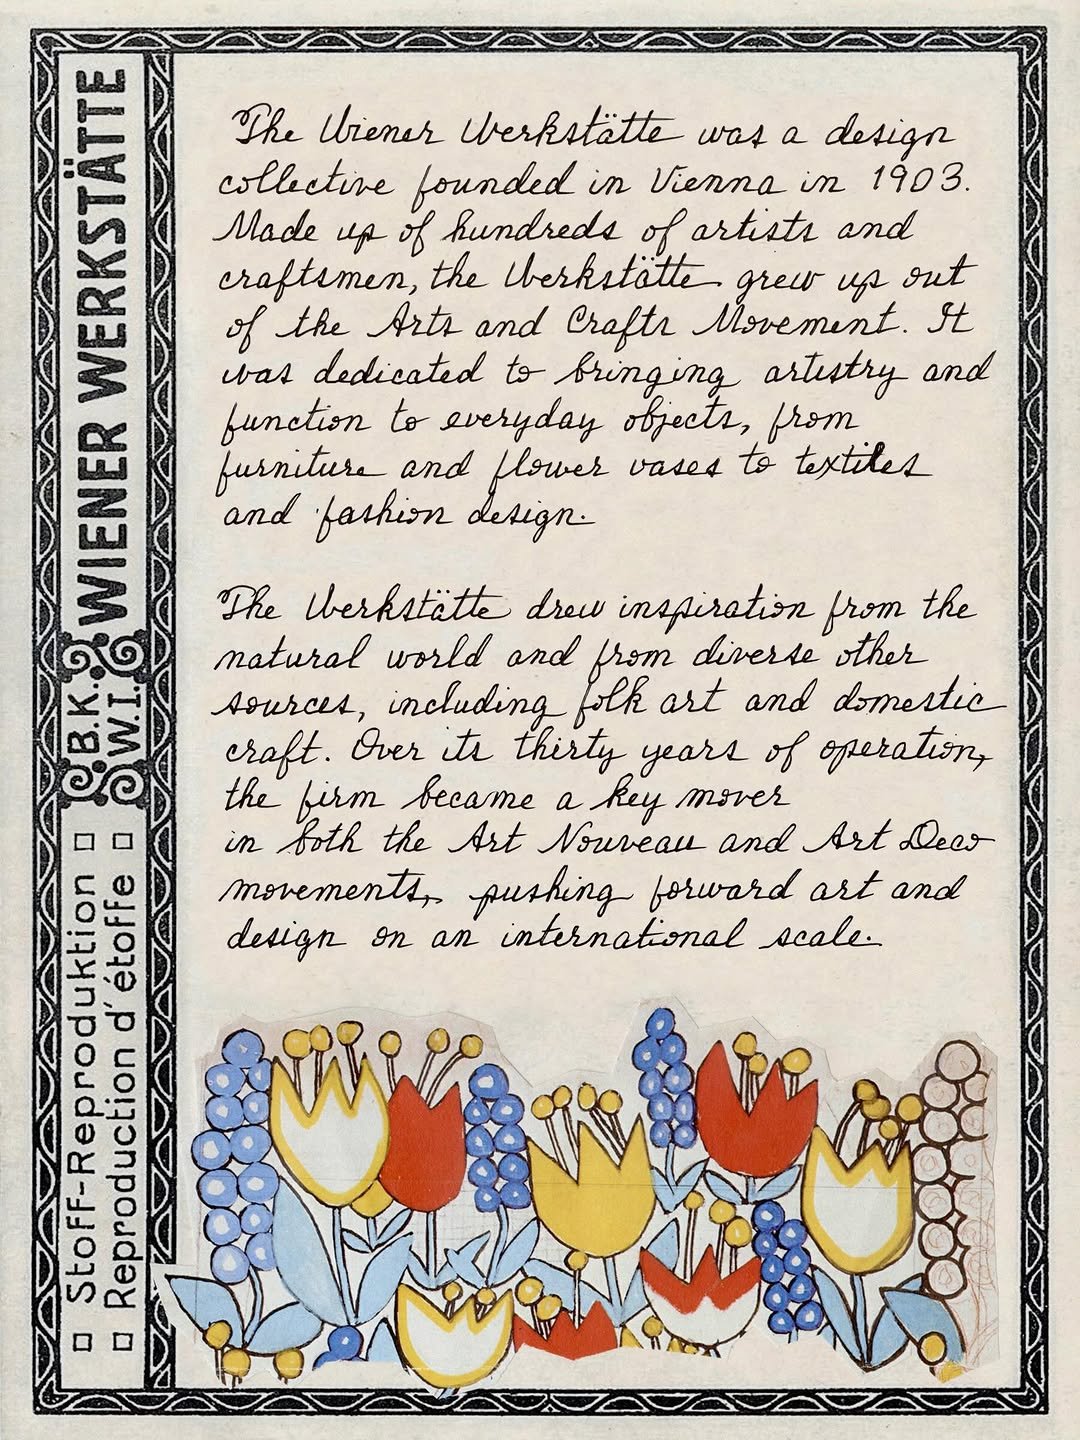 WIENER WERKSTÄTTE
B.K.
W.I.
Stoff-Reproduktion
Reproduction d'étoffe
The Wiener Werkstätte was a design
collective founded in Vienna in 1903.
Made up of hundreds of artists and
craftsmen, the Werkstätte grew up out
of the Arts and Crafts Movement. It
was dedicated to bringing artistry and
function to everyday objects, from
furniture and flower vases to textiles
and fashion design.
The Werkstätte drew inspiration from the
natural world and from diverse other
sources, including folk art and domestic
craft. Over its thirty years of operation,
the firm became a key mover
in both the Art Nouveau and Art Deco
movements, pushing forward art and
design on an international scale.